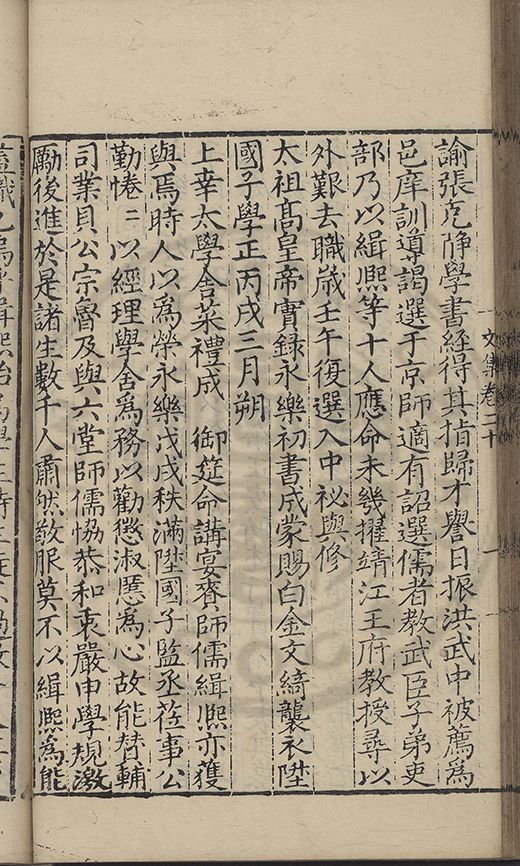 文集卷二十
一
諭張克靜學書經得其指歸才譽日振洪武中被薦為
邑庠訓導謁選于京師適有詔選儒者教武臣子弟吏
部乃以緝熙等十人應命未幾擢靖江王府教授尋以
外艱去職歲壬午復選入中祕與修
太祖髙皇帝實録永樂初書成蒙賜白金文綺襲衣陞
國子學正丙戌三月朔
上幸太學舍菜禮成 御筵命講宴賚師儒緝熙亦獲
與焉時人以為榮永樂戊戌秩滿陞國子監丞莅事公
勤惓二以經理學舍爲務以勸懲淑慝為心故能替輔
司業貝公宗魯及與六堂師儒恊恭和衷嚴申學規激
勵後進於是諸生數千人肅然敬服莫不以緝熙為能